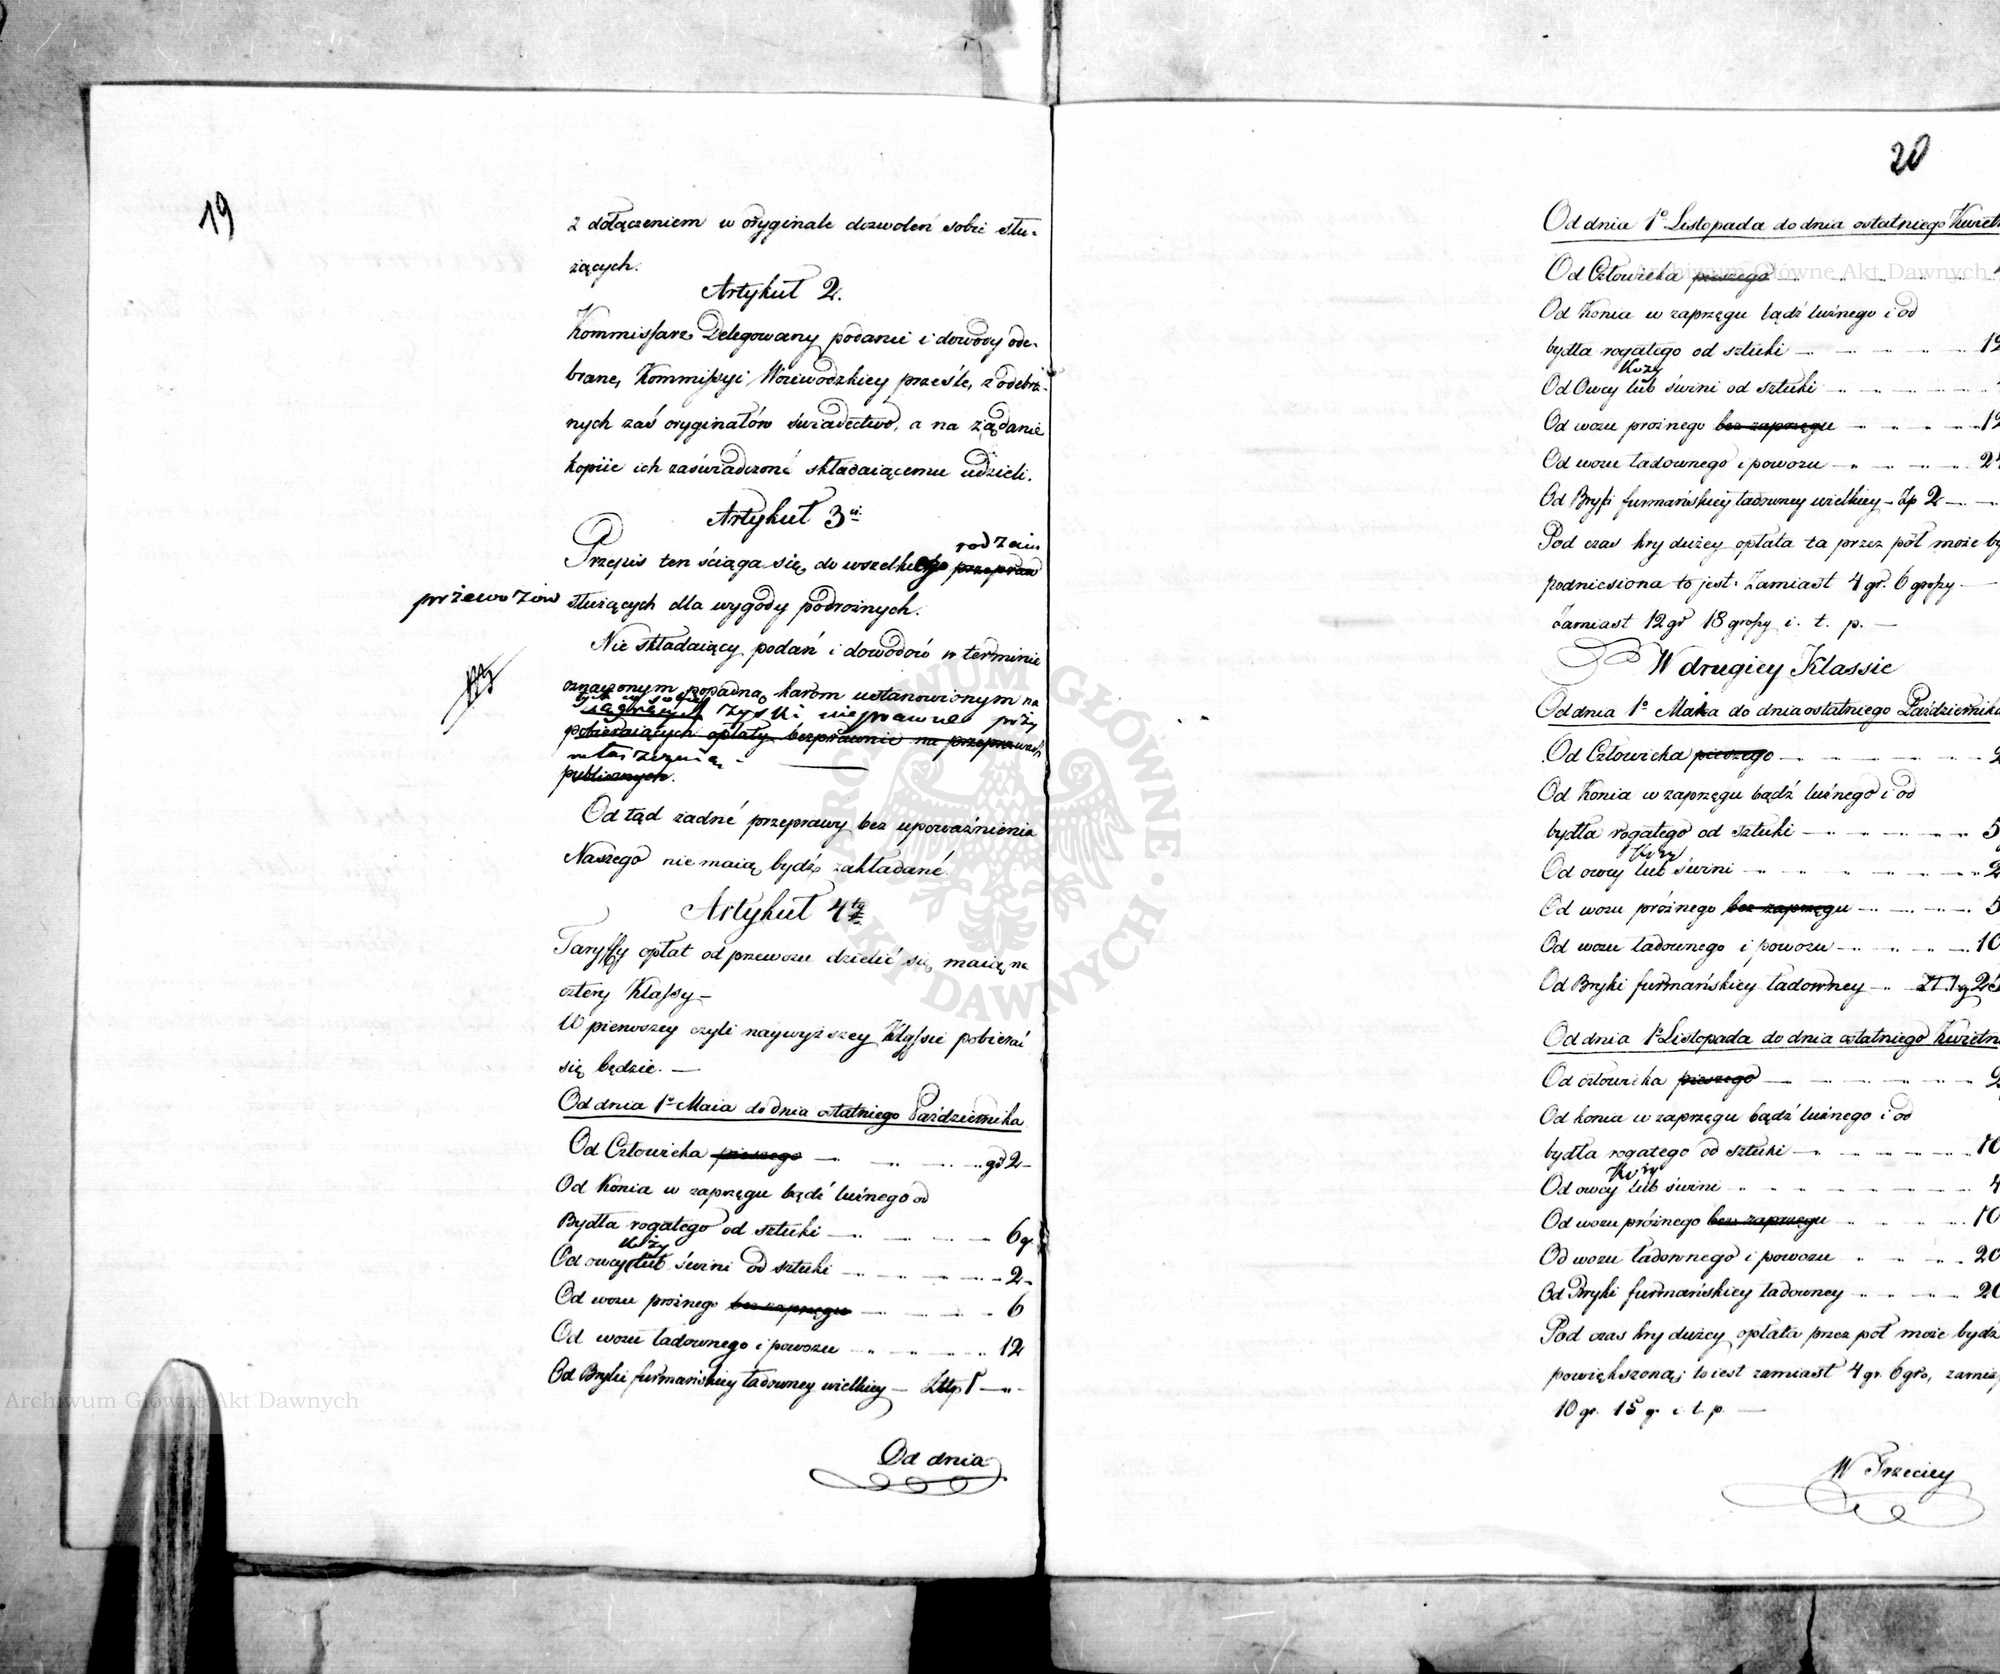 19
z dołączeniem w oryginale dozwoleń sobie słu-
żących.
Artykuł 2.
Kommissarz Delegowany podanie i dowody ode-
brane, Kommissyi Woiewodzkiey prześle, z odebra-
nych zaś oryginałów świadectwo, a na żądanie
kopiie ich zaświadczone składaiącemu udzieli.
Artykuł 3ci
rodzaiu
Przepis ten ściąga się do wszelkiego przepraw
przewozów służących dla wygody podrożnych.
Nie składaiący podań i dowodów w terminie
oznaczonym popadną karom ustanowionym na
zyski nieprawne przy
pobieraiących opłaty bezprawnie na przeprawach
właszczenia
publicznych.
Od tąd żadne przeprawy bez upoważnienia
Naszego nie maią bydź zakładane.
Artykuł 4ty
Taryffy opłat od przewozu dzielić się maią na
cztery Klassy —
W pierwszey czyli naywyższey Klassie pobierać
się będzie. —
Od dnia 1o Maia do dnia ostatniego Października
Od Człowieka pieszego — gr 2 —
Od Konia w zaprzęgu bądź luźnego od
Bydła rogatego od sztuki — 6 g.
Kozy
Od owcy lub świni od sztuki — 2 —
Od wozu prożnego bez zaprzęgu — 6
Od wozu ładownego i powozu — 12
Od Bryki furmańskiey ładowney wielkiey — Złp 1 —
Od dnia
20
Od dnia 1o Listopada do dnia ostatniego Kwietn
Od Człowieka pieszego
Od Konia w zaprzęgu bądź luźnego i od
bydła rogatego od sztuki — 12
Kozy
Od Owcy lub świni od sztuki
Od wozu prożnego bez zaprzęgu — 12
Od wozu ładownego i powozu — 24
Od Bryki furmańskiey ładowney wielkiey — Zp 2 —
Pod czas kry dużey opłata ta przez pół może by
podniesiona to jest. Zamiast 4 gr. 6 groszy —
Zamiast 12 gr 18 groszy i. t. p. —
W drugiey Klassie
Od dnia 1o Maia do dnia ostatniego Października
Od Człowieka pieszego — 2
Od Konia w zaprzęgu bądź luźnego i od
bydła rogatego od sztuki — 5
Kozy
Od owcy lub świni — 2
Od wozu próżnego bez zaprzęgu — 5
Od wozu ładownego i powozu — 10
Od Bryki furmańskiey ładowney
Od dnia 1o Listopada do dnia ostatniego Kwietn
Od człowieka pieszego
Od konia w zaprzęgu bądź luźnego i od
bydła rogatego od sztuki — 10
Kozy
Od owcy lub świni — 4
Od wozu próżnego bez zaprzęgu — 10
Od wozu ładownego i powozu — 20
Od Bryki furmańskiey ładowney — 20
Pod czas kry dużey opłata przez pół może bydź
powiększoną; to iest zamiast 4 gr. 6 gro, zamia
10 gr. 15 g. i. t. p. —
W Trzeciey
ARCHIWUM GŁÓWNE AKT DAWNYCH
Archiwum Główne Akt Dawnych
Archiwum Główne Akt Dawnych